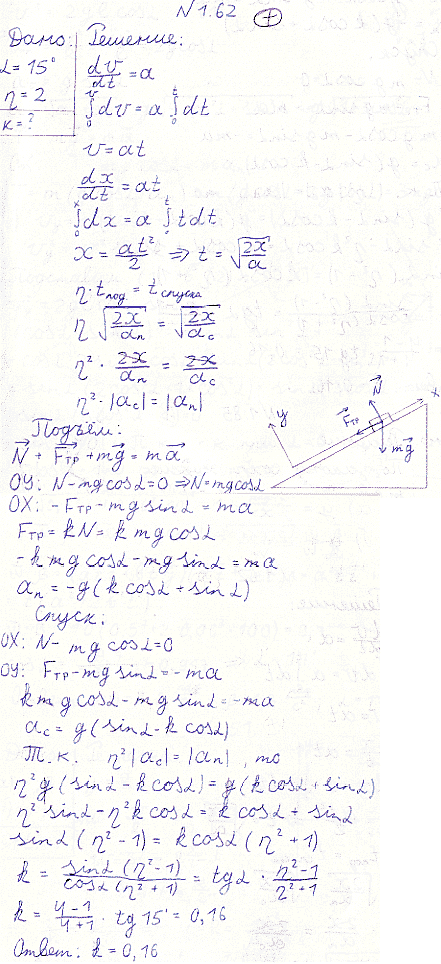 N 1.62 7
Дано: Решение:
α = 15° dv/dt = a
η = 2 ∫₀ᵛ dv = a ∫₀ᵗ dt
к = ?
v = at
dx/dt = at
∫₀ˣ dx = a ∫₀ᵗ t dt
x = at²/2 ⇒ t = √(2x/a)
η · tпод = tспуска
η √(2x/aп) = √(2x/aс)
η² · 2x/aп = 2x/aс
η² · |aс| = |aп|
Подъём:
N + Fтр + mg = ma
ОУ: N - mg cosα = 0 ⇒ N = mg cosα
ОХ: - Fтр - mg sinα = ma
Fтр = kN = k mg cosα
- k mg cosα - mg sinα = ma
aп = -g (k cosα + sinα)
Спуск:
ОХ: N - mg cosα = 0
ОУ: Fтр - mg sinα = - ma
k mg cosα - mg sinα = - ma
aс = g (sinα - k cosα)
Т.к. η² |aс| = |aп|, то
η² g (sinα - k cosα) = g (k cosα + sinα)
η² sinα - η² k cosα = k cosα + sinα
sinα (η² - 1) = k cosα (η² + 1)
k = sinα (η² - 1)/cosα (η² + 1) = tgα · η² - 1/η² + 1
k = 4 - 1/4 + 1 · tg 15° = 0,16
Ответ: k = 0,16
y
Fтр
N
x
mg